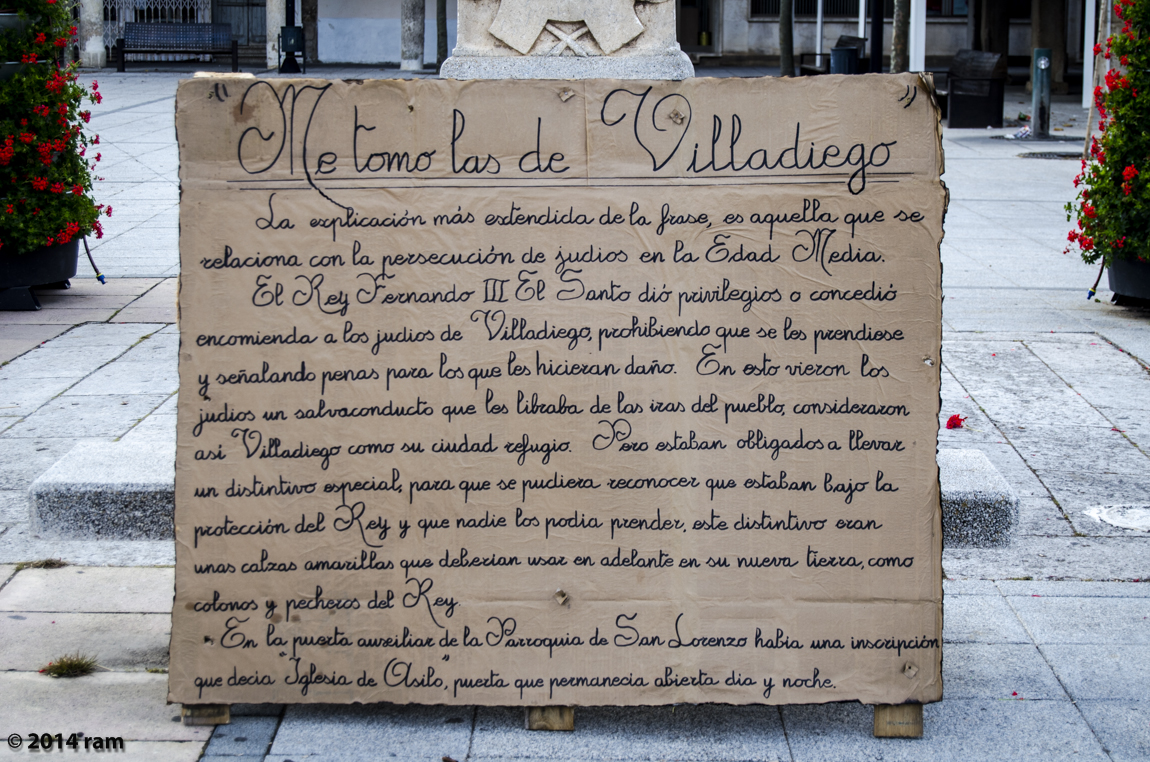 "Me tomo las de Villadiego"
La explicación más extendida de la frase, es aquella que se
relaciona con la persecución de judios en la Edad Media.
El Rey Fernando III El Santo dió privilegios o concedió
encomienda a los judios de Villadiego, prohibiendo que se les prendiese
y señalando penas para los que les hicieran daño. En esto vieron los
judios un salvaconducto que les libraba de las iras del pueblo, consideraron
así Villadiego como su ciudad refugio. Pero estaban obligados a llevar
un distintivo especial, para que se pudiera reconocer que estaban bajo la
protección del Rey y que nadie los podia prender, este distintivo eran
unas calzas amarillas que deberian usar en adelante en su nueva tierra, como
colonos y pecheros del Rey.
En la puerta auxiliar de la Parroquia de San Lorenzo habia una inscripción
que decia "Iglesia de Asilo", puerta que permanecia abierta dia y noche.
© 2014 ram